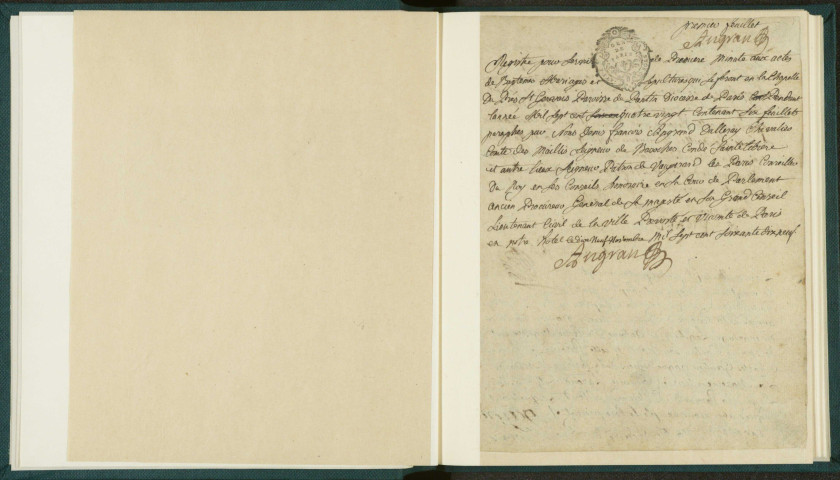 premier feuillet
Angran
Registre pour servir de Premiere Minute aux actes
de Baptemes Mariages et Sepultures qui se feront en la Chapelle
Du Prés St Gervais Paroisse de Pantin Diocese de Paris Pendant
l'année Mil Sept cent quatre vingt contenant Six feuillets
paraphés par Nous Denis françois Angrand Dalleray Chevalier
Comte des Maillis Seigneur de Bazoches Condé Sainte Libière
et autre lieux Seigneur Patron de Vaugirard les Paris Conseiller
Du Roy en ses Conseils honoraire en sa Cour de Parlement
ancien Procureur General de sa majesté en son Grand Conseil
Lieutenant Civil de la ville Prevosté et Vicomté de Paris
en notre hotel le dix Neuf Novembre Mil Sept cent soixante dix neuf.
Angran